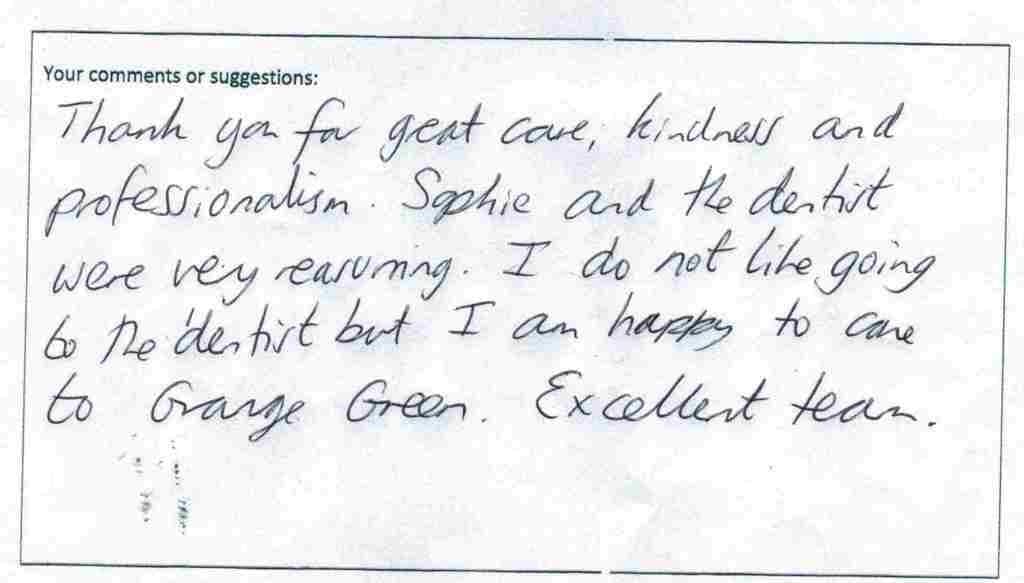 Your comments or suggestions:
Thank you for great care, kindness and
professionalism. Sophie and the dentist
were very reassuring. I do not like going
to the dentist but I am happy to come
to Grange Green. Excellent team.